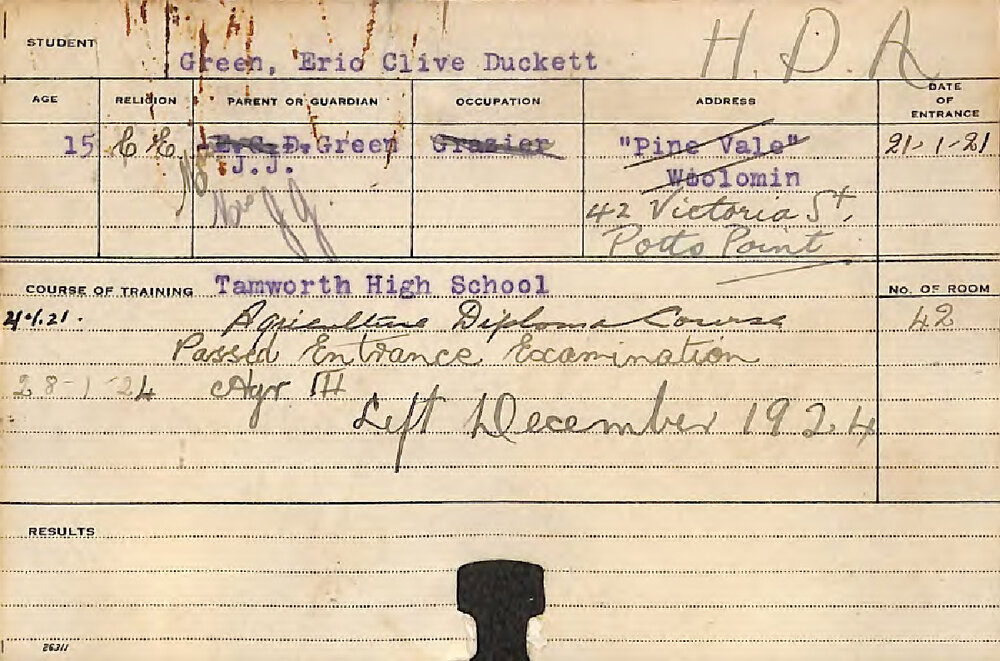 H. D. A
STUDENT Green, Eric Clive Duckett
AGE RELIGION PARENT OR GUARDIAN OCCUPATION ADDRESS DATE OF ENTRANCE
15 C E E.C.D. Green Grazier "Pine Vale" 21-1-21
J.J. Woolomin
Mrs J J. 42 Victoria St,
Potts Point
COURSE OF TRAINING Tamworth High School NO. OF ROOM
21.1.21. Agriculture Diploma Course 42
Passed Entrance Examination
28-1-24 Agr III
Left December 1924
RESULTS
26311